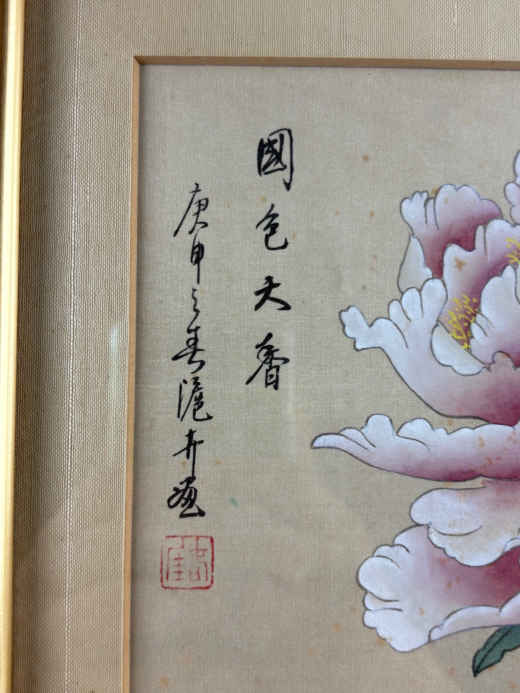 國色天香
庚申之春滬卉画